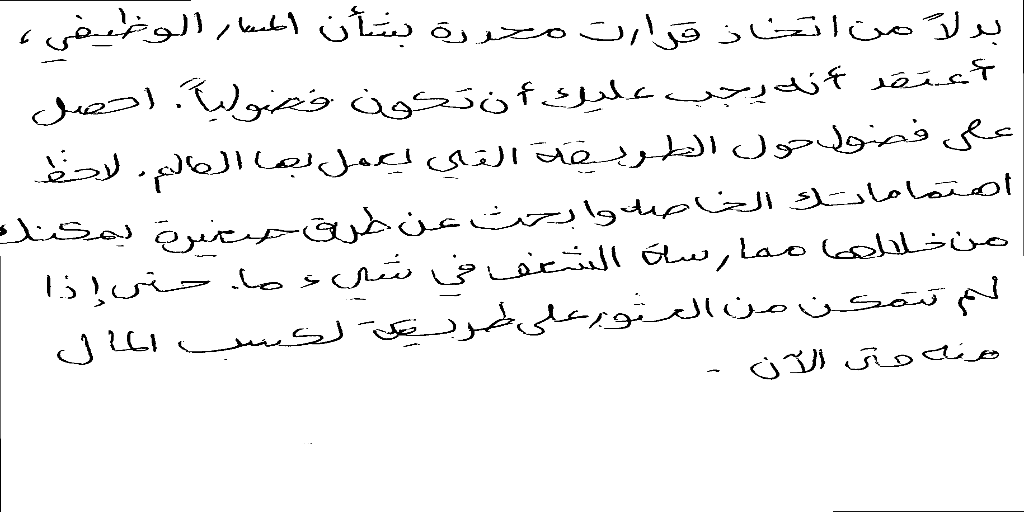 بدلاً من اتخاذ قرارت محددة بشأن المسار الوظيفي ،
أعتقد أنه يجب عليك أن تكون فضولياً. احصل
على فضول حول الطريقة التي يعمل بها العالم. لاحظ
اهتماماتك الخاصه وابحث عن طرق صغيرة يمكنك
من خلالها ممارسة الشغف في شيء ما. حتى إذا
لم تتمكن من العثور على طريقة لكسب المال
منه حتى الآن .